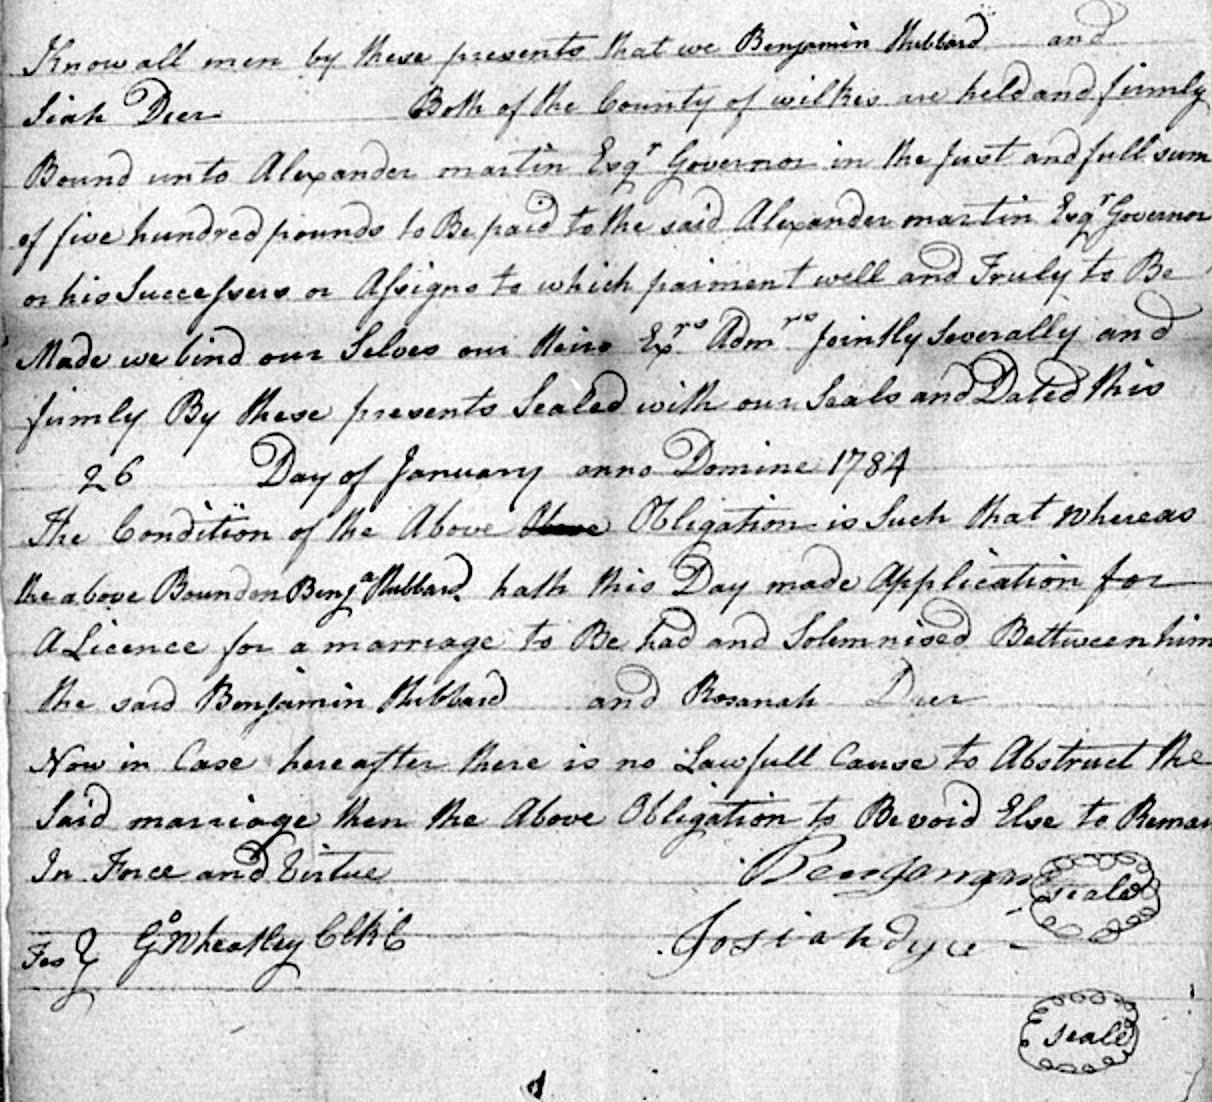 Know all men by these presents that we Benjamin Hubbard and
Siah Dier Both of the County of wilkes are held and firmly
Bound unto Alexander martin Esqr Governor in the Just and full sum
of five hundred pounds to Be paid to the said Alexander martin Esqr Governor
or his Successers or Assigns to which paiment well and Truly to Be
Made we bind our Selves our Heirs Exrs Admrs Jointly Severally and
firmly By these presents Sealed with our Seals and Dated this
26 Day of January anno Domine 1784
The Condition of the Above Above Obligation is Such that Whereas
the above Bounden Benja Hubbard hath this Day made Application for
A Licence for a marriage to Be had and Solemnised Bettween him
the said Benjamin Hubbard and Rosanah Dier
Now in Case hereafter there is no Lawfull Cause to Abstruct the
Said marriage then the Above Obligation to Be void Else to Remai
In Force and Virtue
seale
Go Wheatley Clk C Josiah dye
seale